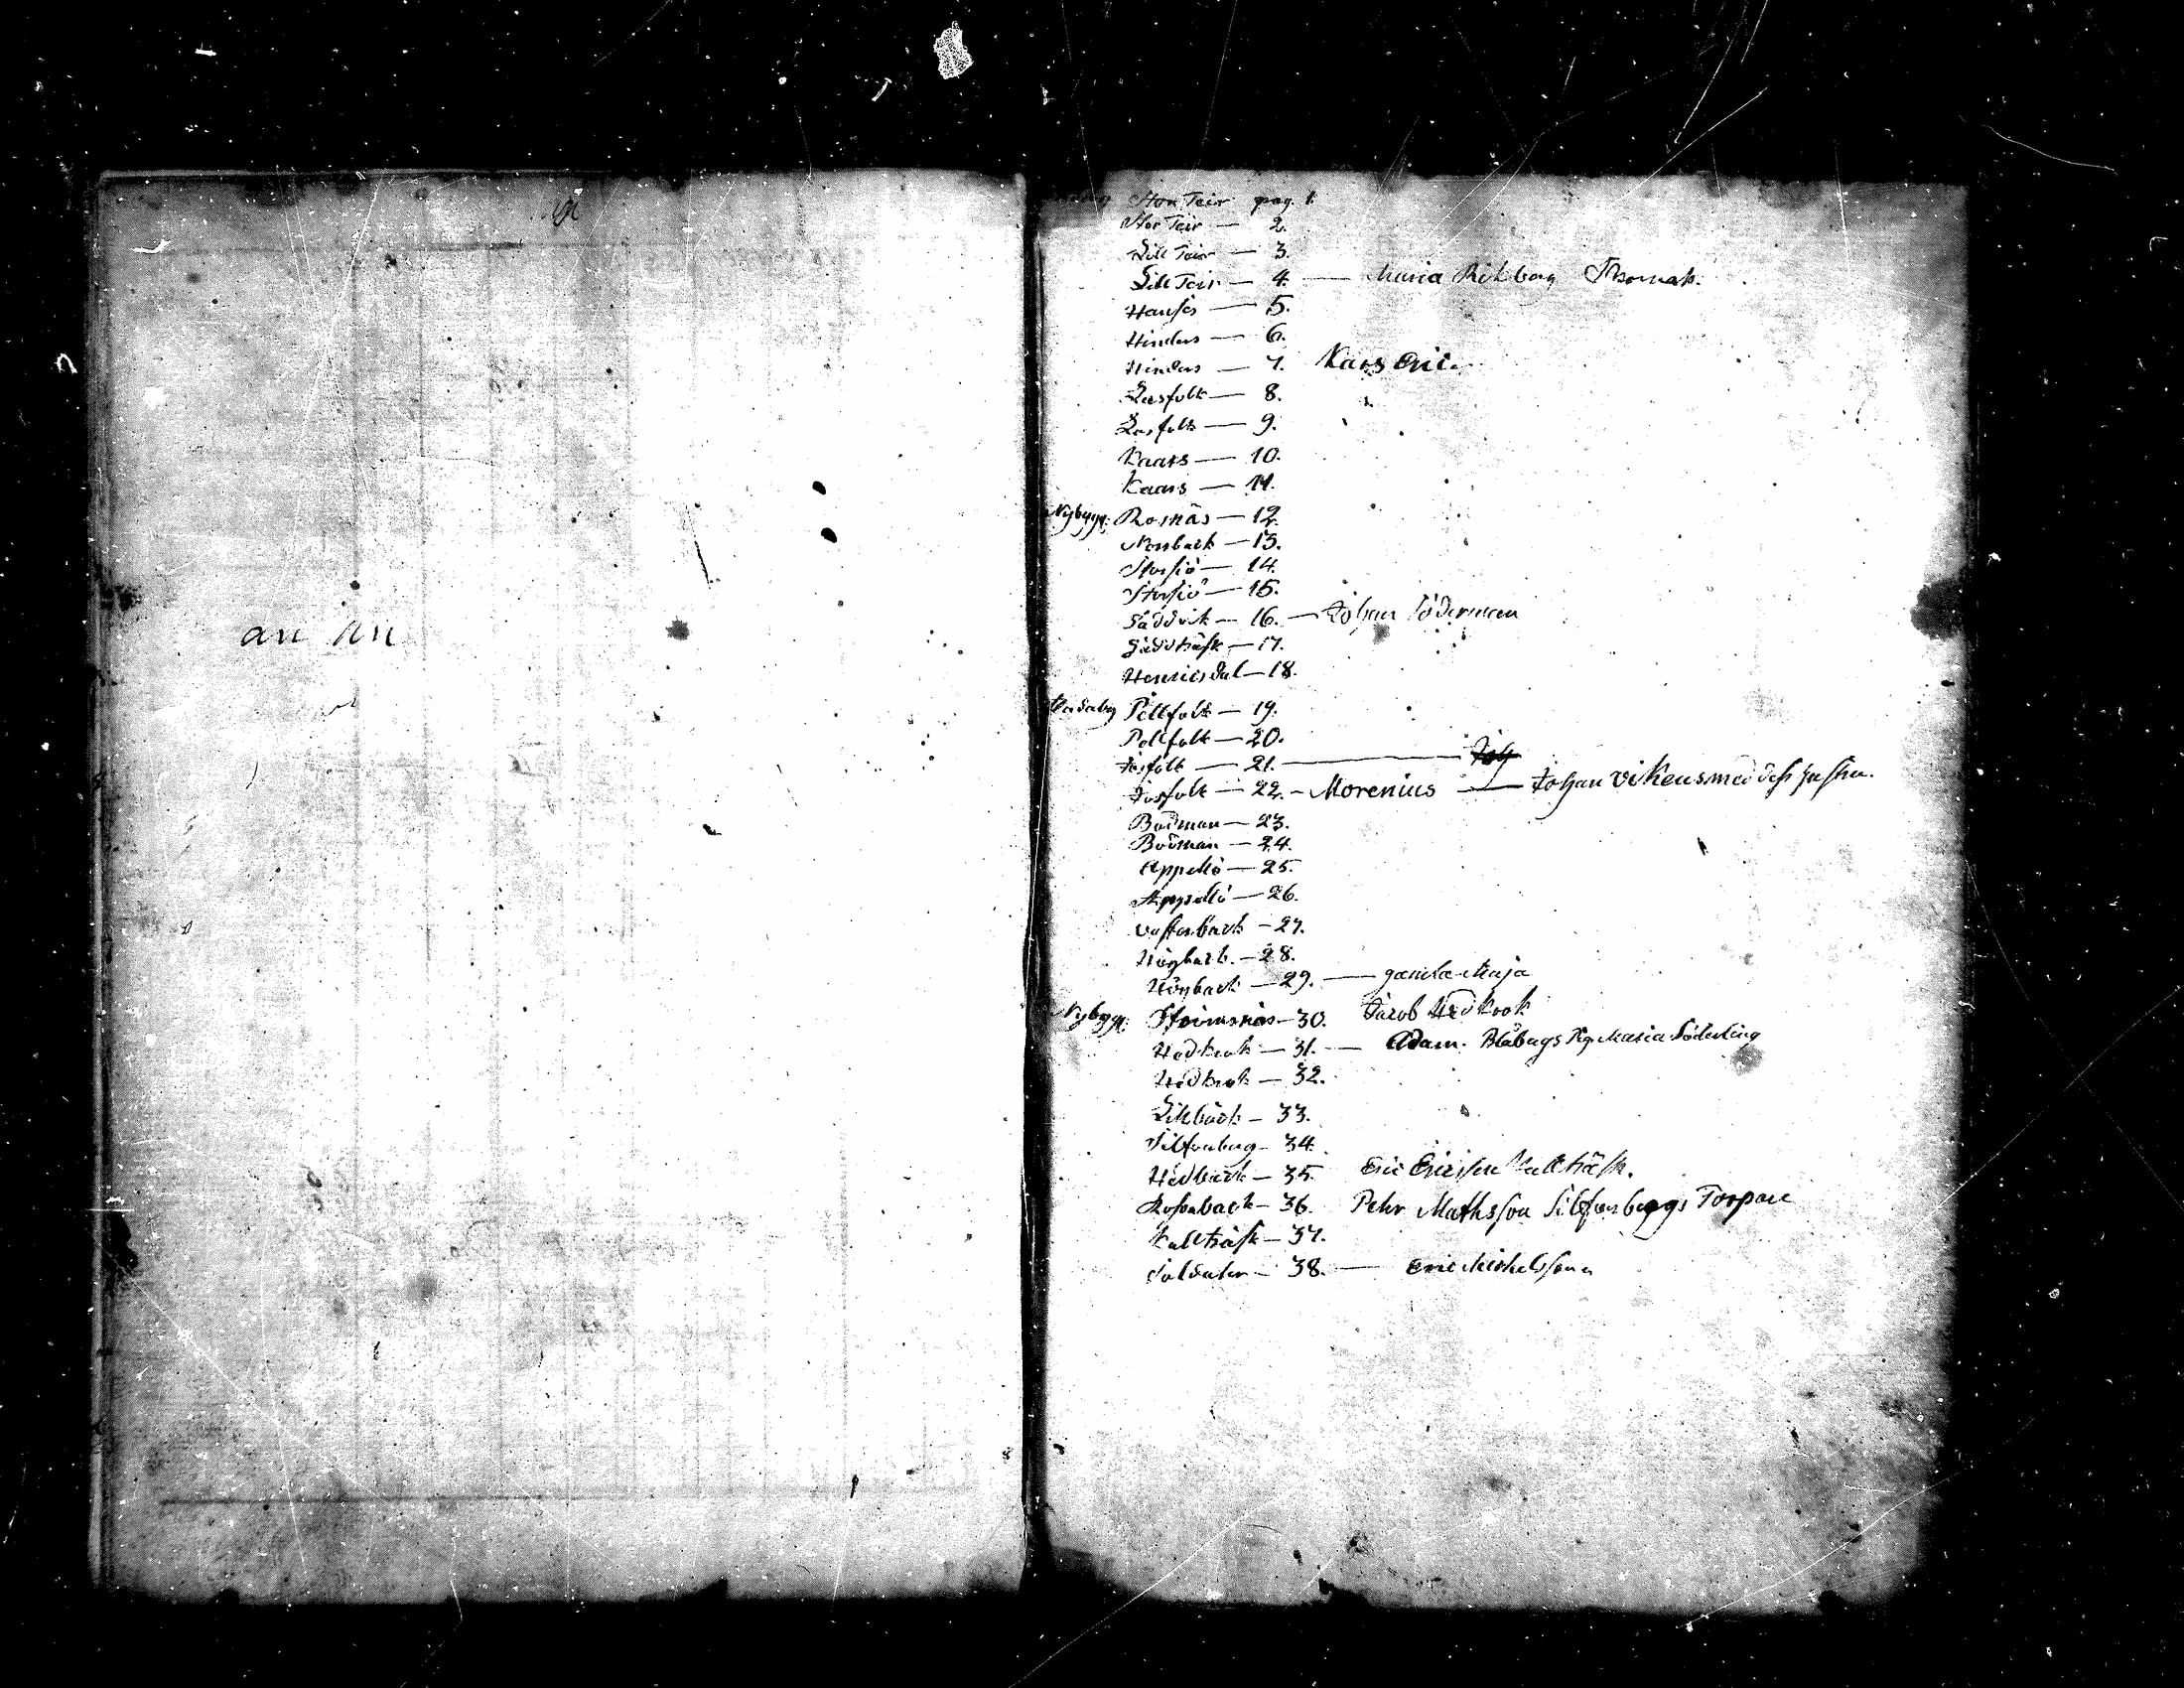 an an
Stor Teir pag. 1.
Stor Teir — 2.
Lill Teir — 3.
Lill Teir — 4. — Maria Rikberg Thomas.
Hansos — 5.
Hinders — 6.
Hinders — 7. Kars Eric.
Lasfolk — 8.
Lasfolk — 9.
Kaars — 10.
Kaars — 11.
Nybygg: Rosnäs — 12.
Norrback — 13.
Storsiö — 14.
Storsiö — 15.
Gäddvik — 16. — Johan Söderman
Gäddträsk — 17.
Henricsdal — 18.
Pellfolk — 19.
Pellfolk — 20.
Josfolk — 21. — Joh
Josfolk — 22. — Morenius — Johan Vikeus med dess
Bodman — 23.
Bodman — 24.
Appellö — 25.
Appellö — 26.
Westerback — 27.
Högback. — 28.
Högback — 29. — gamla Maja
Nybygg: Storrsnäs — 30. Jacob Hedkrok
Hedkrok — 31. — Adam. Blåbergs Pig. Maria Söderling
Hedkrok — 32.
Lillbäck — 33.
Silfverberg — 34.
Hedback — 35. Eric Ericsson Kallträsk.
Rosenback — 36. Pehr Mathsson Silfverbergs Torpare
Kallträsk — 37.
Soldater — 38. — Eric Michelsson